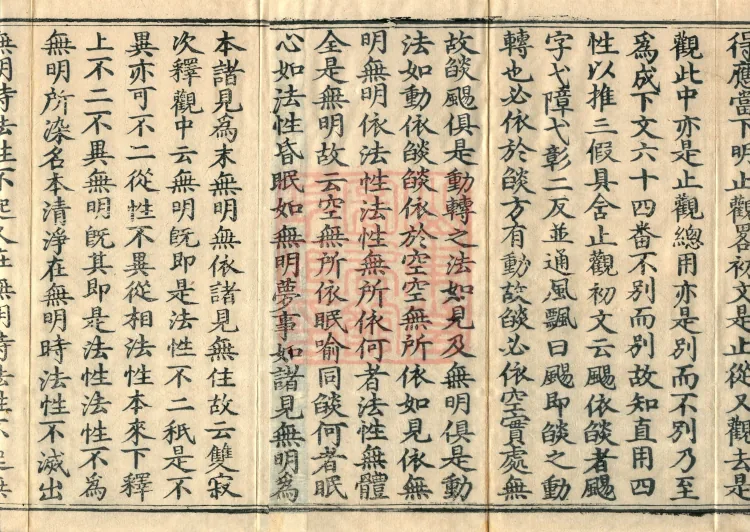 得應當下明止觀畧初文是止從又觀去是
觀此中亦是止觀總用亦是別而不別乃至
爲成下文六十四番不別而別故知直用四
性以推三假具含止觀初文云颺依燄者颺
字弋障弋彰二反並通風飄曰颺即燄之動
轉也必依於燄方有動故燄必依空實處無
故燄颺俱是動轉之法如見及無明俱是動
法如動依燄燄依於空空無所依如見依無
明無明依法性法性無所依何者法性無體
全是無明故云空無所依眠喻同燄何者眠
心如法性昏眠如無明夢事如諸見無明爲
本諸見爲末無明無依諸見無住故云雙寂
次釋觀中云無明旣即是法性不二秖是不
異亦可不二從性不異從相法性本來下釋
上不二不異無明旣其即是法性法性不爲
無明所染名本清淨在無明時法性不滅出
無明時法性不起又在無明時法性不